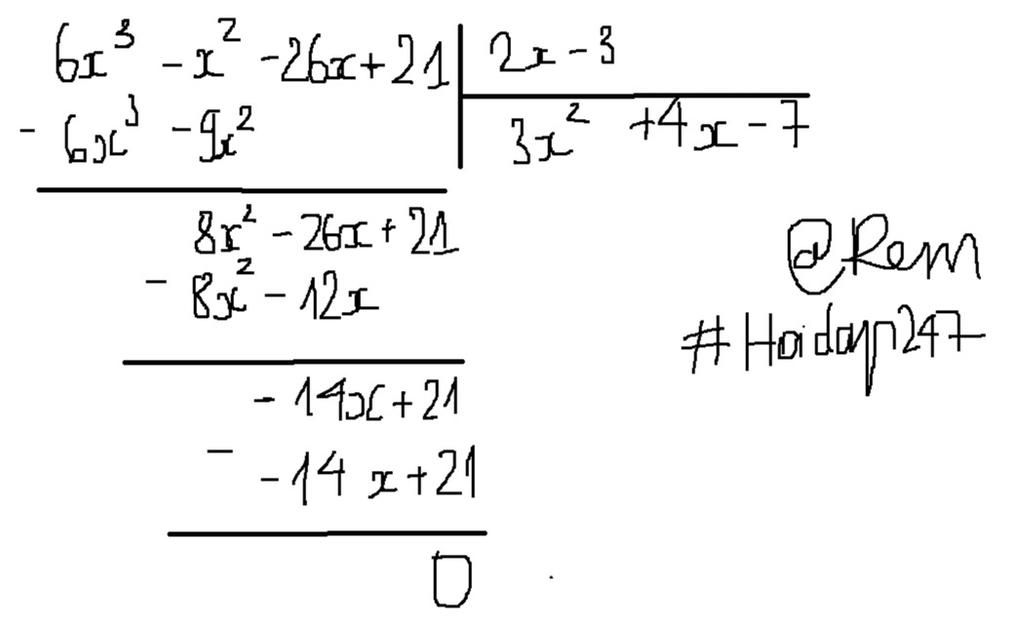 6x³ - x² - 26x + 21 | 2x - 3
- 6x³ - 9x²
3x² + 4x - 7
8x² - 26x + 21
- 8x² - 12x
- 14x + 21
- - 14x + 21
0
@Rem
#Hoidap247